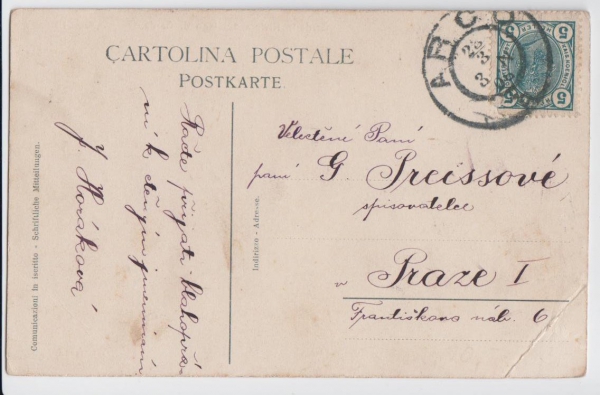 CARTOLINA POSTALE
POSTKARTE
Comunicazioni in iscritto - Schriftliche Mitteilungen.
Račte přijati blahopřá-
ní k
J. Horáková
Indirizzo - Adresse.
Velectěné Paní
paní G. Preissové
spisovatelce
v Praze I
Františkovo nábř. 6
ARCO
5
5